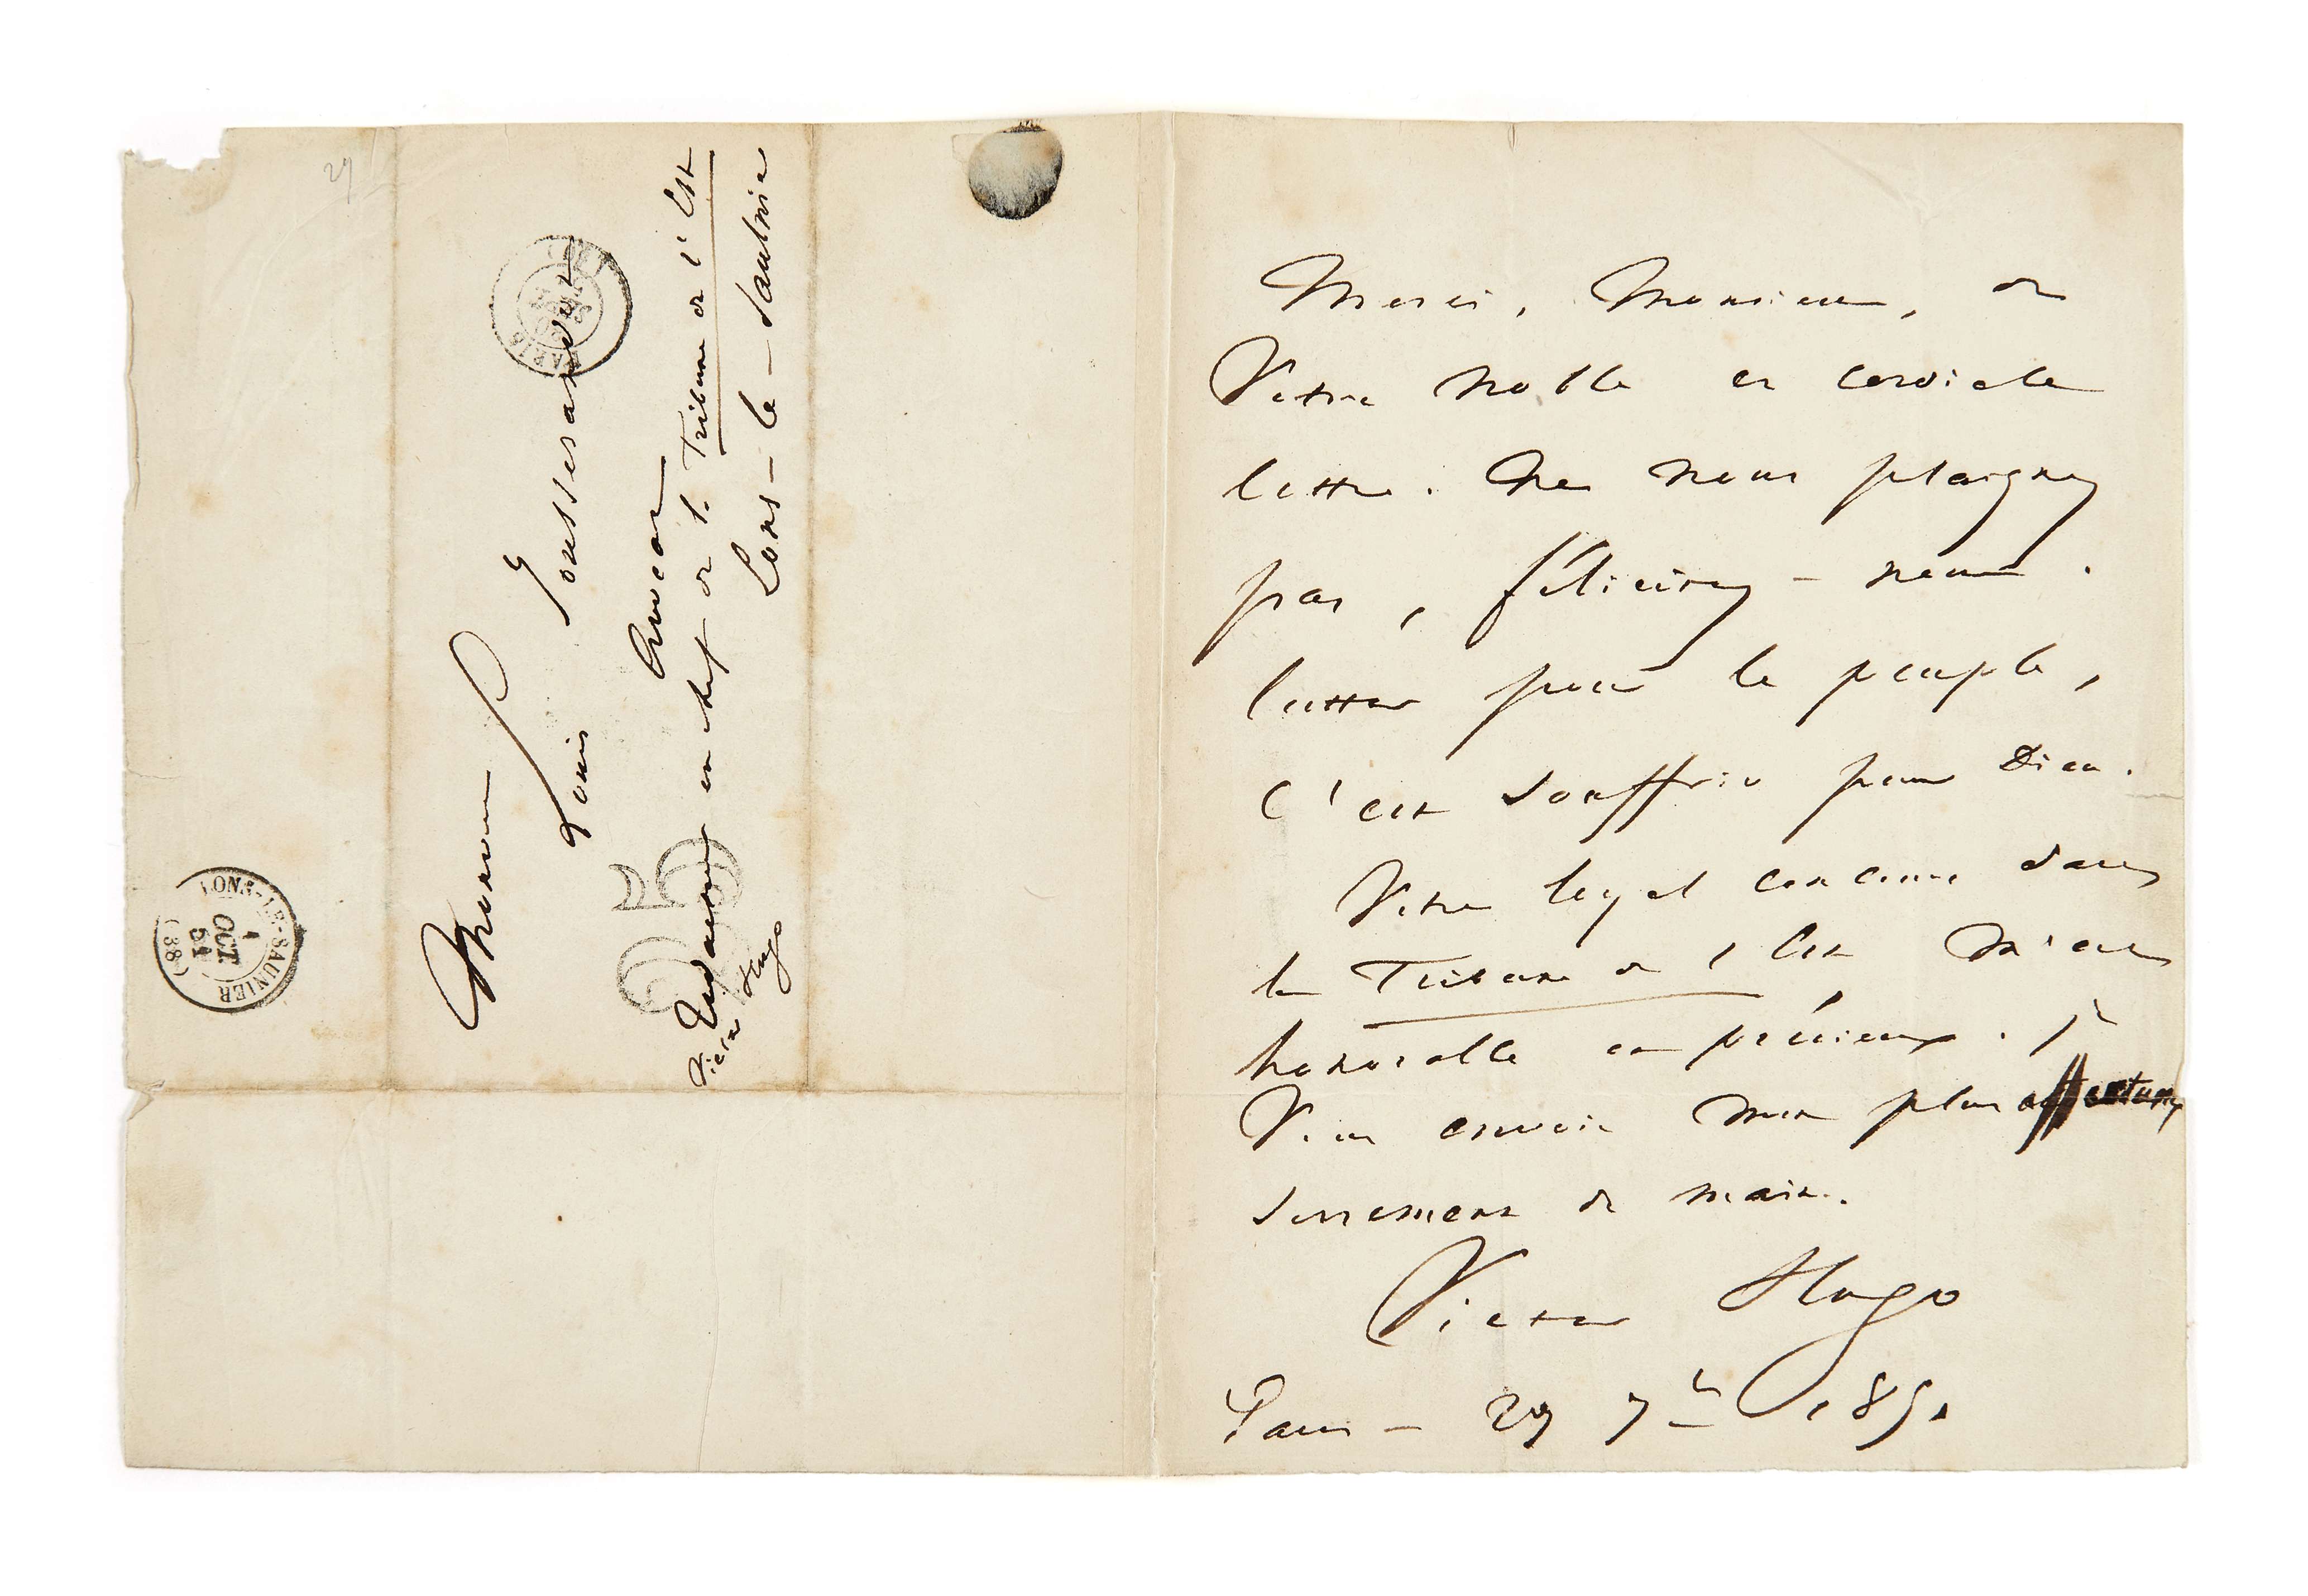 29
Monsieur
Louis Jousserandot
avocat
Rédacteur en chef de la Tribune de l'Est
Lons-le-Saulnier
Victor Hugo
25
PARIS
LONS-LE-SAUNIER
1
OCT
51
(38)
Merci, Monsieur, de
votre noble et cordiale
lettre. Ne nous plaignez
pas, félicitez-nous.
lutter pour le peuple,
c'est souffrir pour Dieu.
Votre loyal concours dans
la Tribune de l'Est m'est
honorable et précieux. Je
vous envoie mon plus affectueux
serrement de main.
Victor Hugo
Paris - 29 7bre 1851